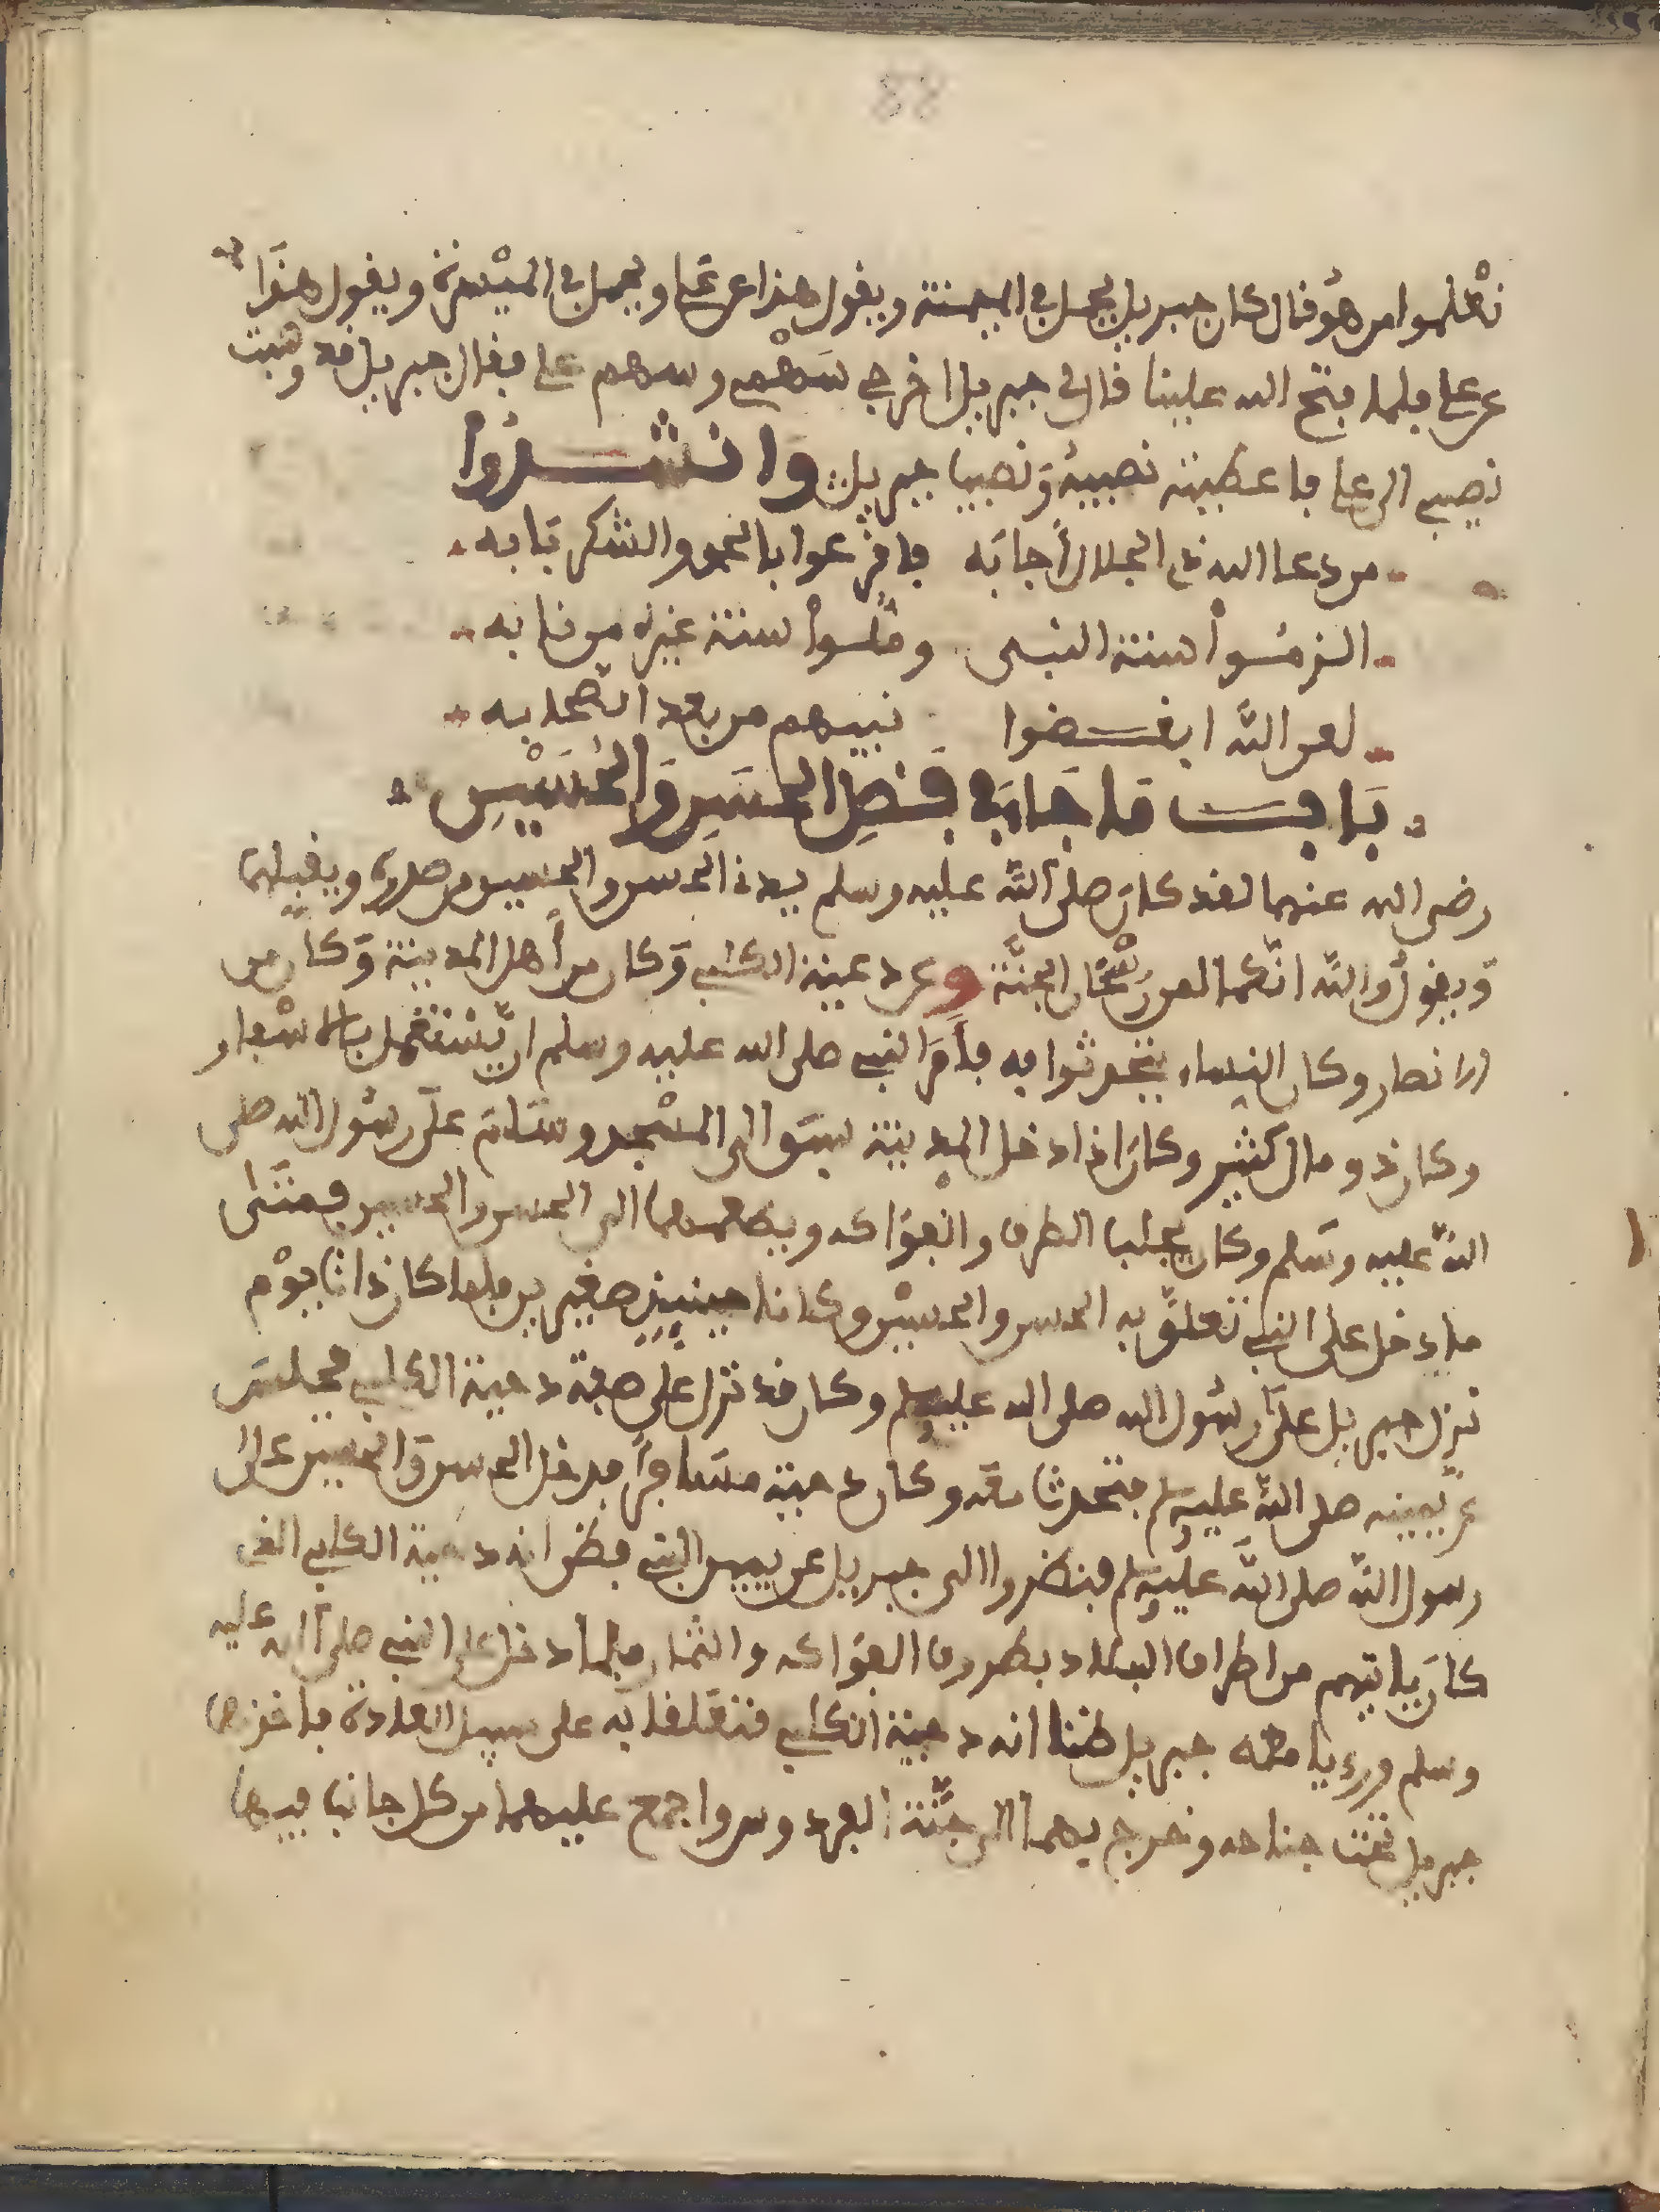 88
تعلموا من هو فال كان جبريل يحمل في الميمنة ويفول هذا عن علي ويحمل في الميسرة ويفول هذا
عن علي فلما فتح الله علينا فال لي جبريل اخرج سهمي وسهم علي ففال جبريل فد وهبت
نصيبي الى علي فاعطيته نصيبه ونصيب جبريل وانشدوا
من دعا الله ذي الجلال أجابه فافرعوا بالحمد والشكر بابه
الزموا سنة النبي وخلوا سنة غيره من نابه
لعن الله ابغضوا نبيهم من بعد الصحابه
باب ما جاء في فضل الحسن والحسين
رضي الله عنهما لفد كان صلى الله عليه وسلم يدني الحسن والحسين من صدره ويفبلهما
ويفول والله انكما لمن ريحان الجنة وعن دحية الكلبي وكان من أهل المدينة وكان من
الانصار وكان النساء يتحدثوا به فأمر النبي صلى الله عليه وسلم ان يشتغل بالاسفار
وكان ذو مال كثير وكان اذا دخل المدينة يسق الى المسجد وسلم على رسول الله صلى
الله عليه وسلم وكان يجلب الطرف والفواكه ويضعهما الى الحسن والحسين فمتى
ما دخل على النبي تعلق به الحسن والحسين وكانا حينيذ صغيرين فلما كان ذات يوم
نزل جبريل على رسول الله صلى الله عليه وسلم وكان فد نزل على صفة دحية الكلبي فجلس
عن يمينه صلى الله عليه وسلم فتحدث معه وكان دحية مسافراً فدخل الحسن والحسين على
رسول الله صلى الله عليه وسلم فنظروا الى جبريل عن يمين النبي فظن انه دحية الكلبي الذي
كان ياتيهم من اطراف البلاد بطروف الفواكه والثمار فلما دخل على النبي صلى الله عليه
وسلم وريا معه جبريل ظنا انه دحية الكلبي فتعلفا به على سبيل العادة فاخذهما
جبريل تحت جناحه وخرج بهما الى جنة الفردوس واجمع عليهما من كل جانب فيها